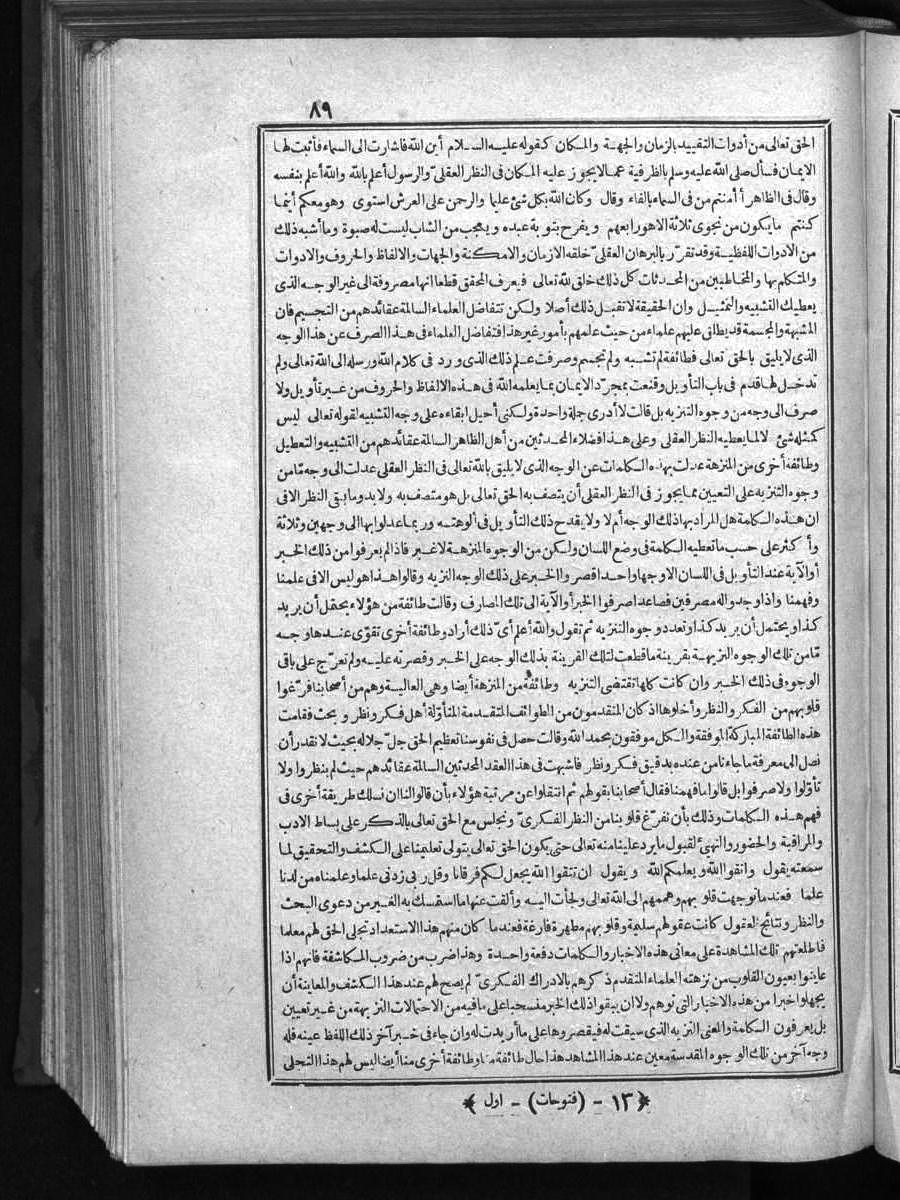 ٨٩
الحق تعالى من أدوات التقييد بالزمان والجهة والمكان كقوله عليه السلام أين الله فاشارت الى السماء فأثبت لها
الايمان فسأل صلى الله عليه وسلم بالظرفية عما لايجوز عليه المكان فى النظر العقلى والرسول أعلم بالله والله أعلم بنفسه
وقال فى الظاهر أأمنتم من فى السماء بالفاء وقال وكان الله بكل شئ عليما والرحمن على العرش استوى وهو معكم أينما
كنتم مايكون من نجوى ثلاثة الاهو رابعهم ويفرح بتوبة عبده ويعجب من الشاب ليست له صبوة وماأشبه ذلك
من الادوات اللفظية وقد تقرّر بالبرهان العقلىّ خلقه الازمان والامكنة والجهات والالفاظ والحروف والادوات
والمتكلم بها والمخاطبين من المحدثات كل ذلك خلق لله تعالى فيعرف المحقق قطعا انها مصروفة الى غير الوجه الذى
يعطيك التشبيه والتمثيل وان الحقيقة لاتقبل ذلك أصلا ولكن تتفاضل العلماء السالمة عقائدهم من التجسيم فان
المشبهة والمجسمة قد يطلق عليهم علماء من حيث علمهم بأمور غير هذا فتفاضل العلماء فى هذا الصرف عن هذا الوجه
الذى لايليق بالحق تعالى فطائفة لم تشبه ولم تجسم وصرفت علم ذلك الذى ورد فى كلام الله ورسله الى الله تعالى ولم
تدخل لها قدم فى باب التأويل وقنعت بمجرّد الايمان بما يعلمه الله فى هذه الالفاظ والحروف من غير تأويل ولا
صرف الى وجه من وجوه التنزيه بل قالت لا أدرى جملة واحدة ولكنى أحيل ابقاءه على وجه التشبيه لقوله تعالى ليس
كمثله شئ لالما يعطيه النظر العقلى وعلى هذا فضلاء المحدثين من أهل الظاهر السالمة عقائدهم من التشبيه والتعطيل
وطائفة أخرى من المنزهة عدلت بهذه الكلمات عن الوجه الذى لايليق بالله تعالى فى النظر العقلى عدلت الى وجه مّا من
وجوه التنزيه على التعيين مما يجوز فى النظر العقلى أن يتصف به الحق تعالى بل هو متصف به ولا بد ومابقى النظر الا فى
ان هذه الكلمة هل المراد بها ذلك الوجه أم لا ولا يقدح ذلك التأويل فى ألوهته وربما عدلوا بها الى وجهين وثلاثة
وأكثر على حسب ماتعطيه الكلمة فى وضع اللسان ولكن من الوجوه المنزهة لاغير فاذالم يعرفوا من ذلك الخبر
أوالآية عند التأويل فى اللسان الاوجها واحدا قصروا الخبر على ذلك الوجه النزيه وقالوا هذا هو ليس الا فى علمنا
وفهمنا واذا وجدوا له مصرفين فصاعدا صرفوا الخبر أو الآية الى تلك المصارف وقالت طائفة من هؤلاء يحتمل أن يريد
كذا ويحتمل أن يريد كذا وتعدد وجوه التنزيه ثم تقول والله أعلم أىّ ذلك أراد وطائفة أخرى تقوّى عندها وجه
مّا من تلك الوجوه النزيهة بقرينة ما قطعت لتلك القرينة بذلك الوجه على الخبر وقصرته عليه ولم تعرّج على باقى
الوجوه فى ذلك الخبر وان كانت كلها تقتضى التنزيه وطائفة من المنزهة أيضا وهى العالية وهم من أصحابنا فرّغوا
قلوبهم من الفكر والنظر وأخلوها اذ كان المتقدمون من الطوائف المتقدمة المتأوّلة أهل فكر ونظر وبحث فقامت
هذه الطائفة المباركة الموفقة والكل موفقون بحمد الله وقالت حصل فى نفوسنا تعظيم الحق جلّ جلاله بحيث لانقدر أن
نصل الى معرفة ماجاءنا من عنده بدقيق فكر ونظر فاشبهت فى هذا العقد المحدثين السالمة عقائدهم حيث لم ينظروا ولا
تأوّلوا ولا صرفوا بل قالوا مافهمنا فقال أصحابنا بقولهم ثم انتقلوا عن مرتبة هؤلاء بأن قالوا لنا ان نسلك طريقة أخرى فى
فهم هذه الكلمات وذلك بأن نفرّغ قلوبنا من النظر الفكرىّ ونجلس مع الحق تعالى بالذكر على بساط الادب
والمراقبة والحضور والتهئ لقبول مايرد علينا منه تعالى حتى يكون الحق تعالى يتولى تعليمنا على الكشف والتحقيق لما
سمعته يقول واتقوا الله ويعلمكم الله ويقول ان تتقوا الله يجعل لكم فرقانا وقل ربى زدنى علما وعلمناه من لدنا
علما فعندما توجهت قلوبهم وهممهم الى الله تعالى ولجأت اليه وألقت عنها ما استمسك به الغير من دعوى البحث
والنظر ونتائج العقول كانت عقولهم سليمة وقلوبهم مطهرة فارغة فعندما كان منهم هذا الاستعداد تجلى الحق لهم معلما
فاطلعتهم تلك المشاهدة على معانى هذه الاخبار والكلمات دفعة واحدة وهذا ضرب من ضروب المكاشفة فانهم اذا
عاينوا بعيون القلوب من نزهته العلماء المتقدم ذكرهم بالادراك الفكرىّ لم يصح لهم عند هذا الكشف والمعاينة أن
يجهلوا خبرا من هذه الاخبار التى توهم ولا ان يبقوا ذلك الخبر منسحبا على مافيه من الاحتمالات النزيهة من غير تعيين
بل يعرفون الكلمة والمعنى النزيه الذى سيقت له فيقصروها على ماأريدت له وان جاء فى خبر آخر ذلك اللفظ عينه فله
وجه آخر من تلك الوجوه المقدسة معين عند هذا المشاهد هذا حال طائفة منا وطائفة أخرى منا أيضا ليس لهم هذا التجلى
﴿ ١٣ - (فتوحات) - اول ﴾